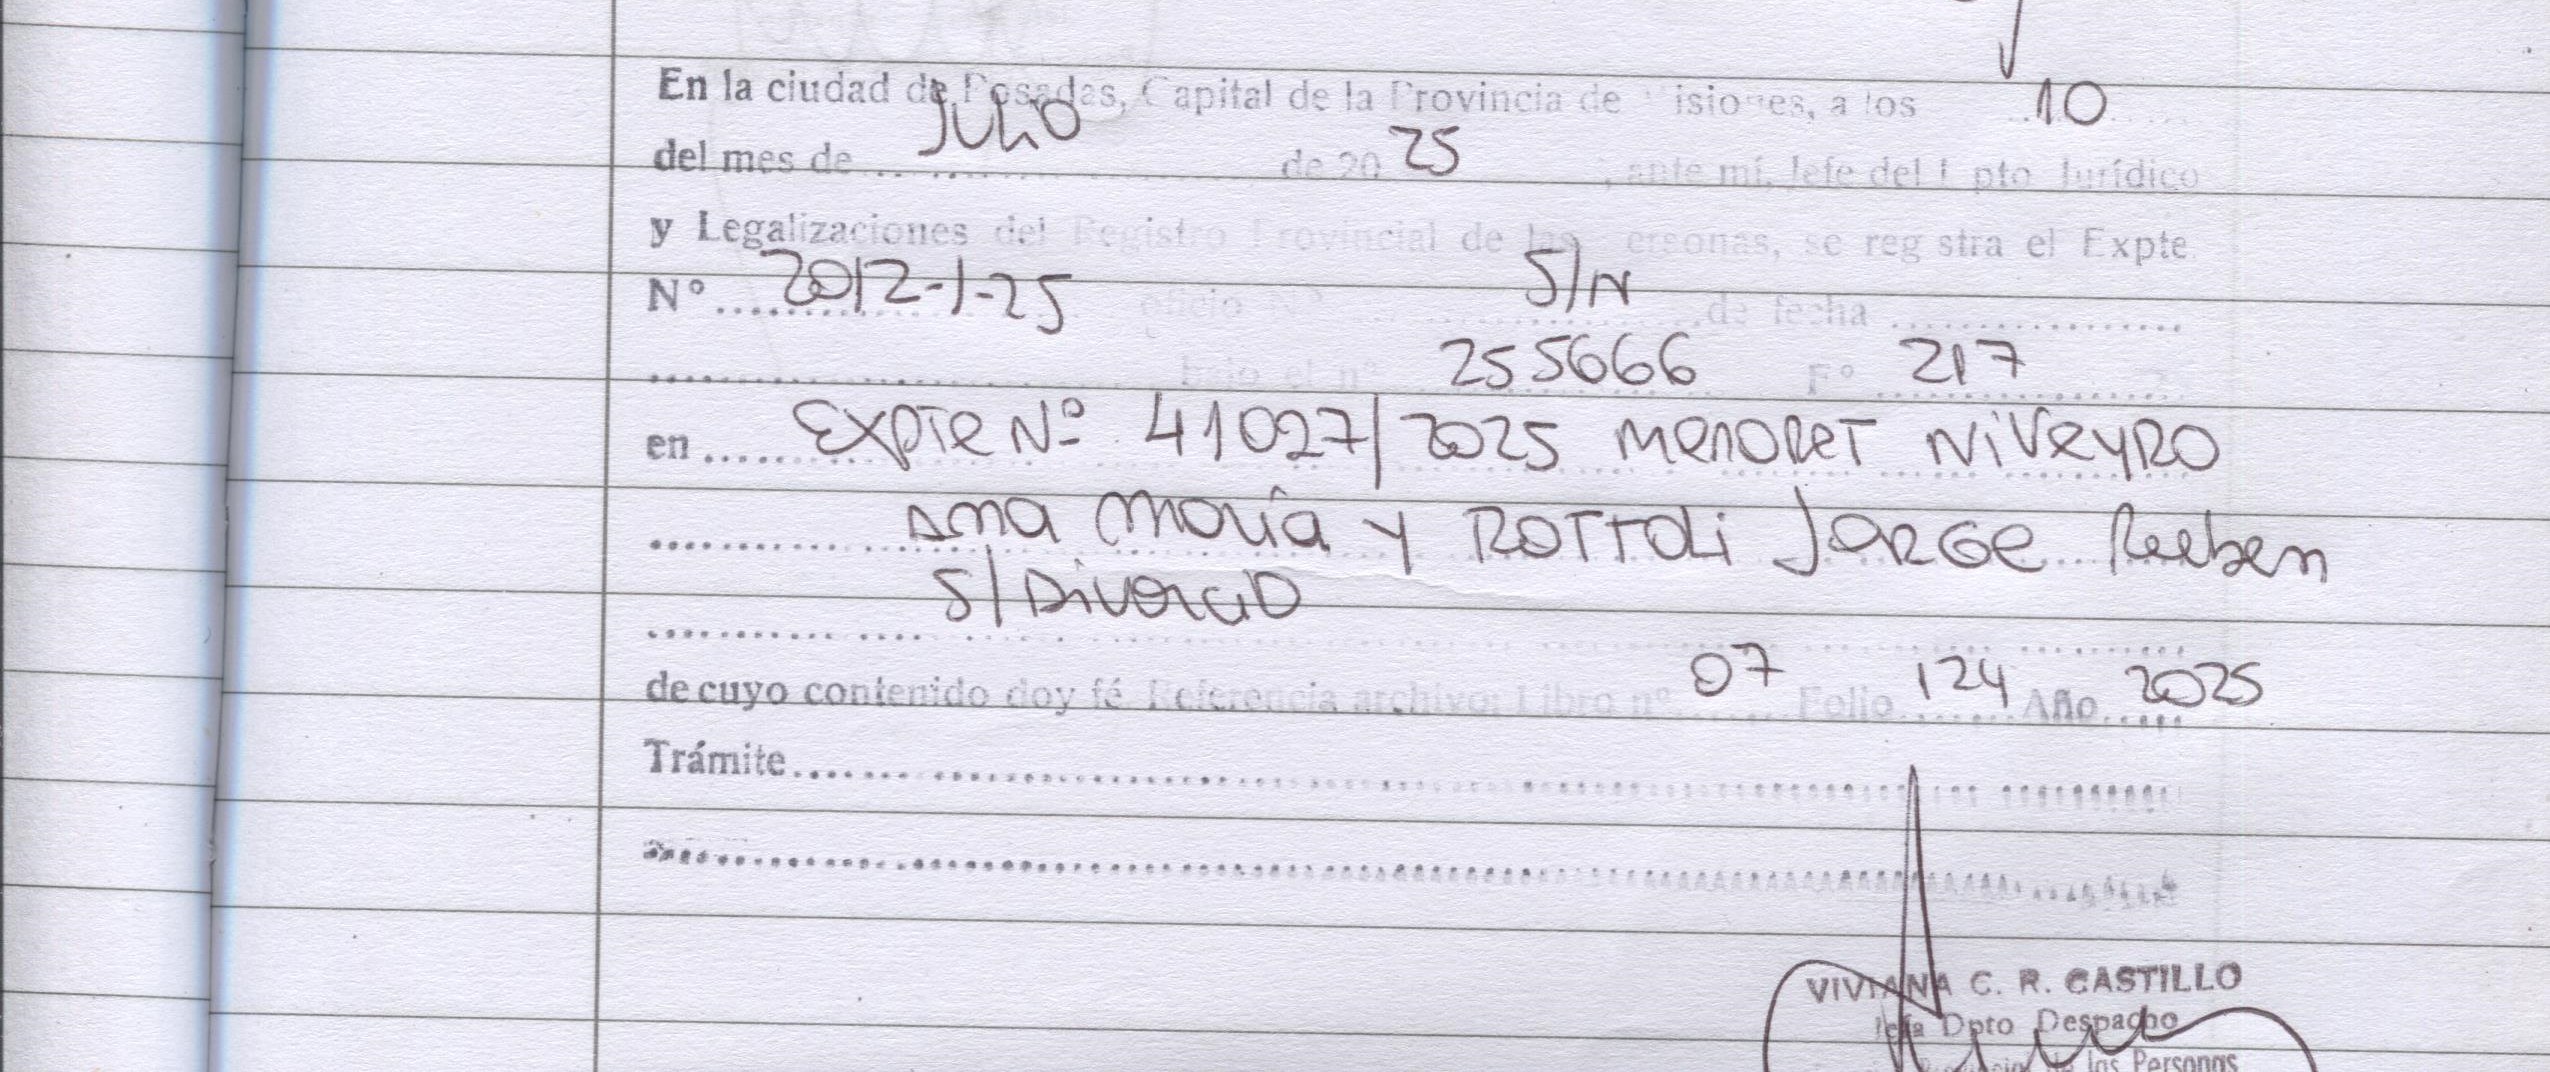 En la ciudad de Posadas, Capital de la Provincia de Misiones, a los 10
del mes de Julio de 2025, ante mí, Jefe del Dpto Jurídico
y Legalizaciones del Registro Provincial de las Personas, se registra el Expte
Nº 2012-1-25 oficio Nº S/N de fecha
bajo el nº 255666 Fº 217
en EXPTE Nº 41027/2025 MENORET NIVEYRO
Ana María y ROTTOLI JORGE Ruben
S/DIVORCIO
de cuyo contenido doy fé Referencia archivo: Libro nº 07 Folio 124 Año 2025
Trámite
VIVIANA C. R. CASTILLO
Jefa Dpto Despacho
de las Personas